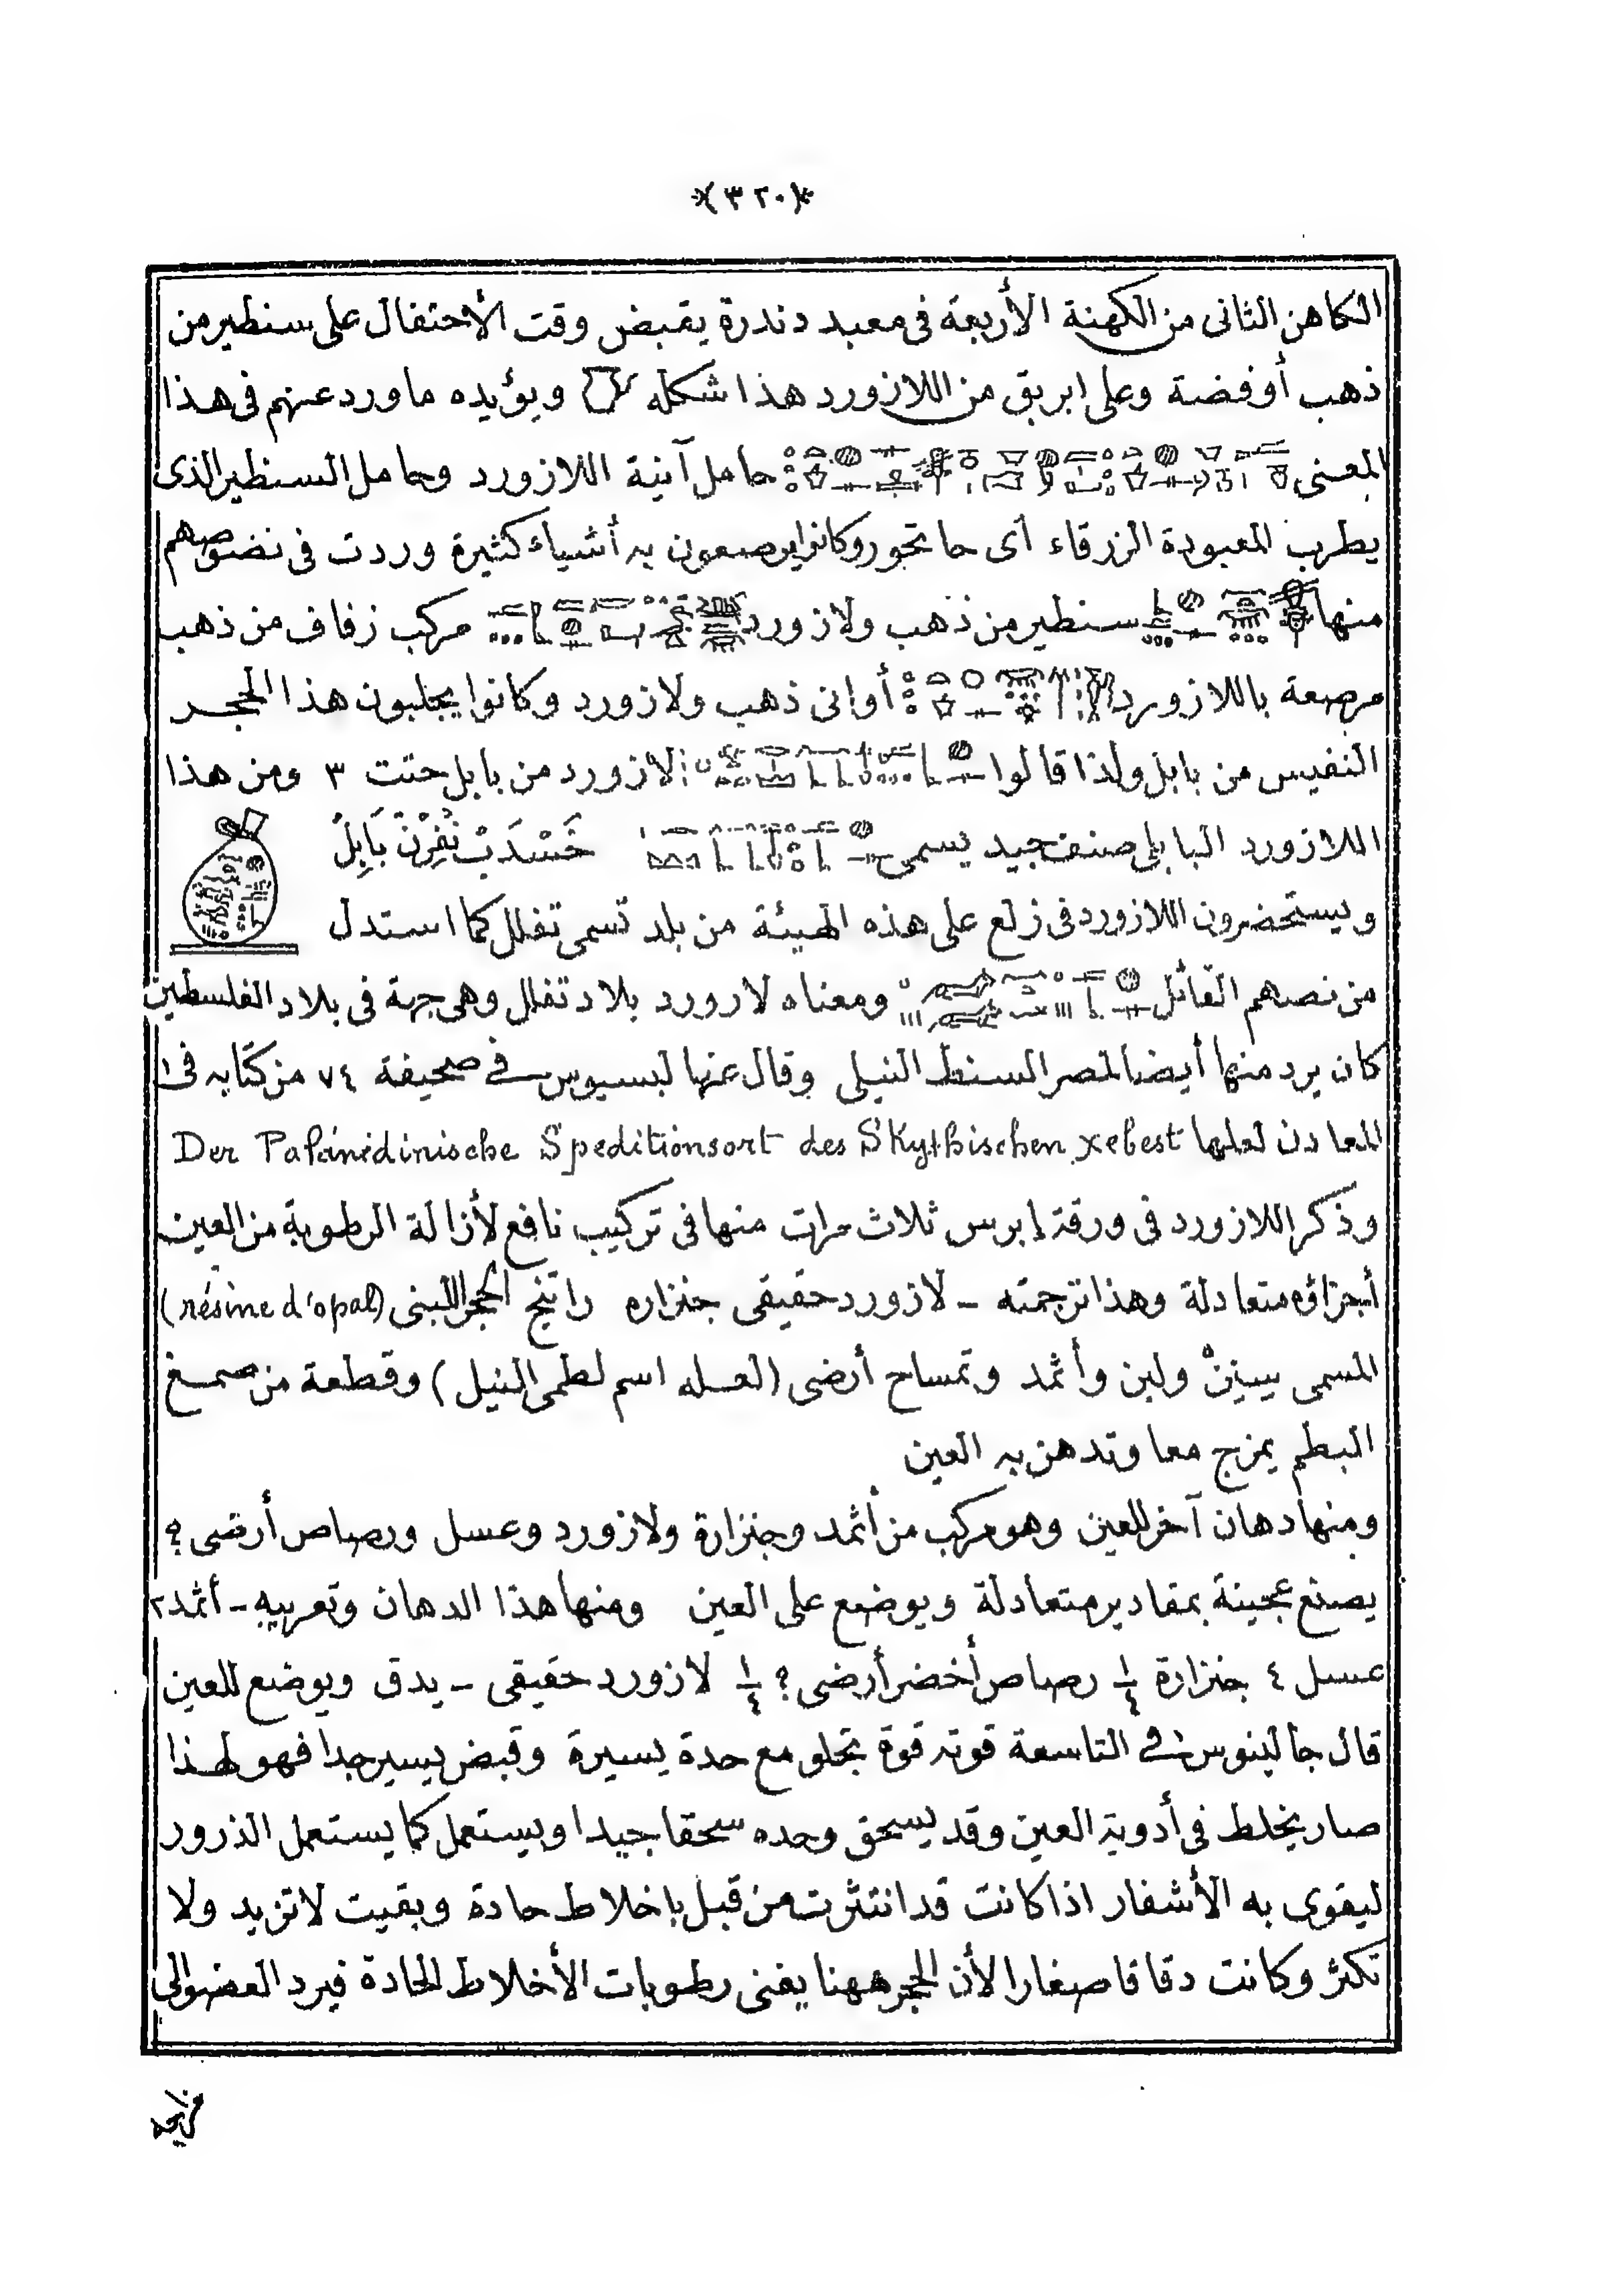 *(٣٢٠)*
الكاهن الثانى من الكهنة الأربعة فى معبد دندرة يقبض وقت الأحتفال على سنطير من
ذهب أوفضة وعلى ابريق من اللازورد هذا شكله ويؤيده ماورد عنهم فى هذا
المعنى حامل آنية اللازورد وحامل السنطير الذى
يطرب المعبودة الزرقاء أى حاتحور وكانوا يرصعون به أشياء كثيرة وردت فى نصوصهم
منها سنطير من ذهب ولازورد مركب زفاف من ذهب
مرصعة باللازورد أوانى ذهب ولازورد وكانوا يجلبون هذا الحجر
النفيس من بابل ولذا قالوا لازورد من بابل حتت ٣ ومن هذا
اللازورد البابلى صنف جيد يسمى خَسْدَبْ نُفِرْنْ بَابِلْ
ويستحضرون اللازورد فى زلع على هذه الهيئة من بلد تسمى تفلل كما استدل
من نصهم القائل ومعناه لازورد بلاد تفلل وهى جهة فى بلاد الفلسطين
كان يرد منها أيضا لمصر السنط النيلى وقال عنها لبسيوس فى صحيفة ٧٤ من كتابه فى
المعادن لعلها Der Pafänidinische Speditionsort des Skythischen xebest
وذكر اللازورد فى ورقة إبرس ثلاث مرات منها فى تركيب نافع لأزالة الرطوبة من العين
أجزاؤه متعادلة وهذا ترجمته - لازورد حقيقى جنزاره راتنج الحجر اللبنى (résine d'opal)
المسمى ولبن وأثمد وتمساح أرضى (لعله اسم لطمى النيل) وقطعة من صمغ
البطم يمزج معا وتدهن به العين
ومنها دهان آخر للعين وهو مركب من أثمد وجنزارة ولازورد وعسل ورصاص أرضى ؟
يصنع عجينة بمقادير متعادلة ويوضع على العين ومنها هذا الدهان وتعريبه - أثمد ٢
عسل ٤ جنزارة ١/٤ رصاص أخضر أرضى ؟ ١/٤ لازورد حقيقى - يدق ويوضع للعين
قال جالينوس فى التاسعة قوته قوة تجلو مع حدة يسيرة وقبض يسير جدا فهو لهذا
صار يخلط فى أدوية العين وقد يسحق وحده سحقا جيدا ويستعمل كما يستعمل الذرور
ليقوى به الأشفار اذا كانت قد انتثرت من قبل باخلاط حادة وبقيت لا تزيد ولا
تكثر وكانت دقاقا صغارا لأن الحجر ههنا يفنى رطوبات الأخلاط الحادة فيرد العضو الى